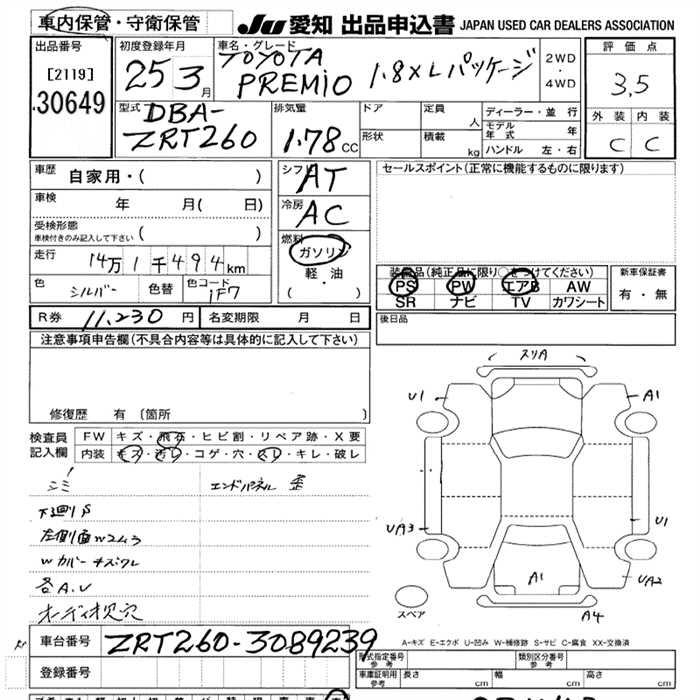 車内保管・守衛保管
JU 愛知 出品申込書 JAPAN USED CAR DEALERS ASSOCIATION
出品番号
[2119]
30649
初度登録年月
25 3月
車名・グレード
TOYOTA
PREMIO 1.8XLパッケージ
2WD
・
4WD
評価点
3.5
外装 内装
C C
型式
DBA-
ZRT260
排気量
1.78 CC
ドア
形状
定員 人
積載 kg
ディーラー・並行
モデル年式 年
ハンドル 左・右
車歴
自家用・( )
車検 年 月( 日)
受検形態
車検付きのみ記入して下さい ( )
走行 14万1千494km
色 シルバー 色替 色コード 1F7
シフト AT
冷房 AC
燃料
ガソリン
軽・油
( ・ )
セールスポイント(正常に機能するものに限ります)
装備品(純正品に限り○をつけてください)
PS PW エアB AW
SR ナビ TV カワシート
新車保証書
有・無
後日品
R券 11,230円 名変期限 月 日
注意事項申告欄(不具合内容等は具体的に記入して下さい)
修復歴 有 〔箇所 〕
検査員記入欄
FW キズ・飛石・ヒビ割・リペア跡・X要
内装 キズ・汚レ・コゲ・穴・スレ・キレ・破レ
シミ
エンドパネル 歪
下廻りS
左側面W2 3
Wカバーキズワレ
各A.U
オーディオ欠穴
スリA
U1
A1
UA3
U1
A1
UA2
A4
スペア
A-キズ E-エクボ U-凹み W-補修跡 S-サビ C-腐食 XX-交換済
車台番号 ZRT260-3089239
登録番号
型式指定番号 参考
類別区分番号 参考
車庫証明用 参考 長さ cm 幅 cm 高さ cm